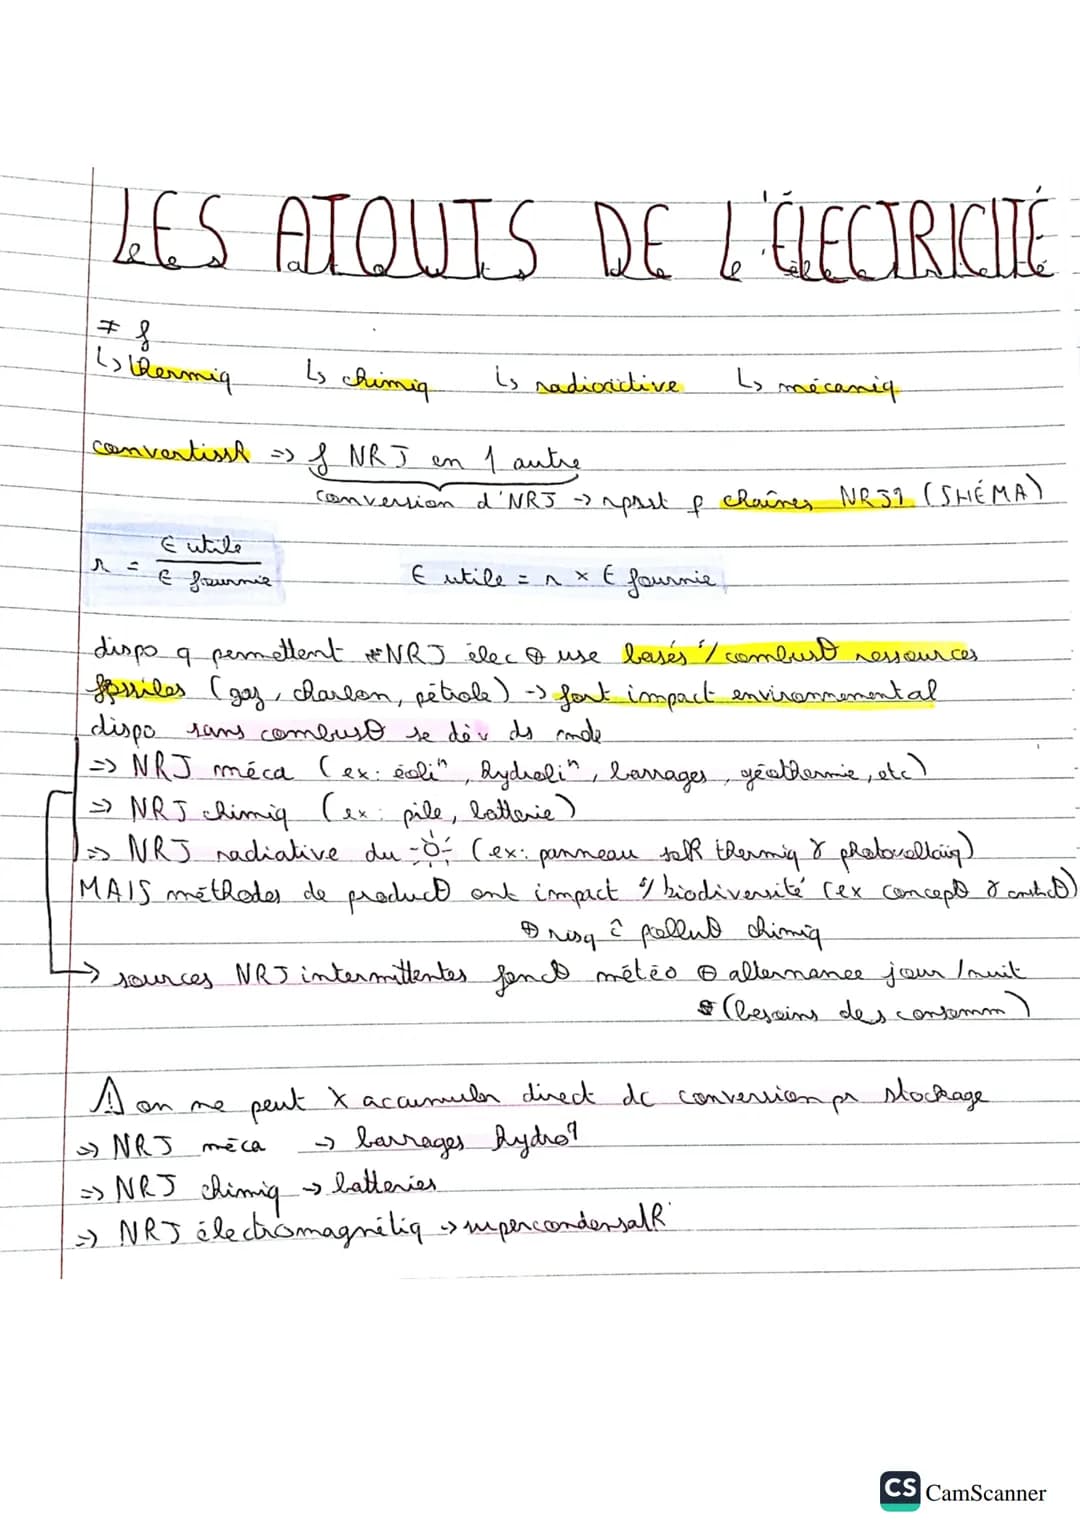 LES ATOUTS DE L'ÉLECTRICITÉ
≠ f
↳ thermiq ↳ chimiq ↳ radioactive ↳ mécaniq
convertissR => f NRJ en 1 autre
conversion d'NRJ -> rprst p chaînes NRJ? (SHÉMA)
r = E utile / E fournie E utile = r x E fournie
dispo q permettent NRJ élec ⊕ use basés s/ combust° ressources
fossiles (gaz, charbon, pétrole) -> fort impact environnemental
dispo sans combust° se dév ds mnde
=> NRJ méca (ex: éoli^n, hydroli^n, barrages, géothermie, etc)
=> NRJ chimiq (ex: pile, batterie)
=> NRJ radiative du (ex: panneau solR thermiq & photovoltaiq)
MAIS méthodes de product° ont impact s/ biodiversité (ex concept° & const°)
⊕ risq ê pollut° chimiq
-> sources NRJ intermittentes fonct° météo ⊕ alternance jour/nuit
(besoins des consomm)
⚠ on ne peut x accumuler direct dc conversion pr stockage
=> NRJ méca -> barrages hydro?
=> NRJ chimiq -> batteries
=> NRJ électromagnétiq -> supercondensatR
CS CamScanner